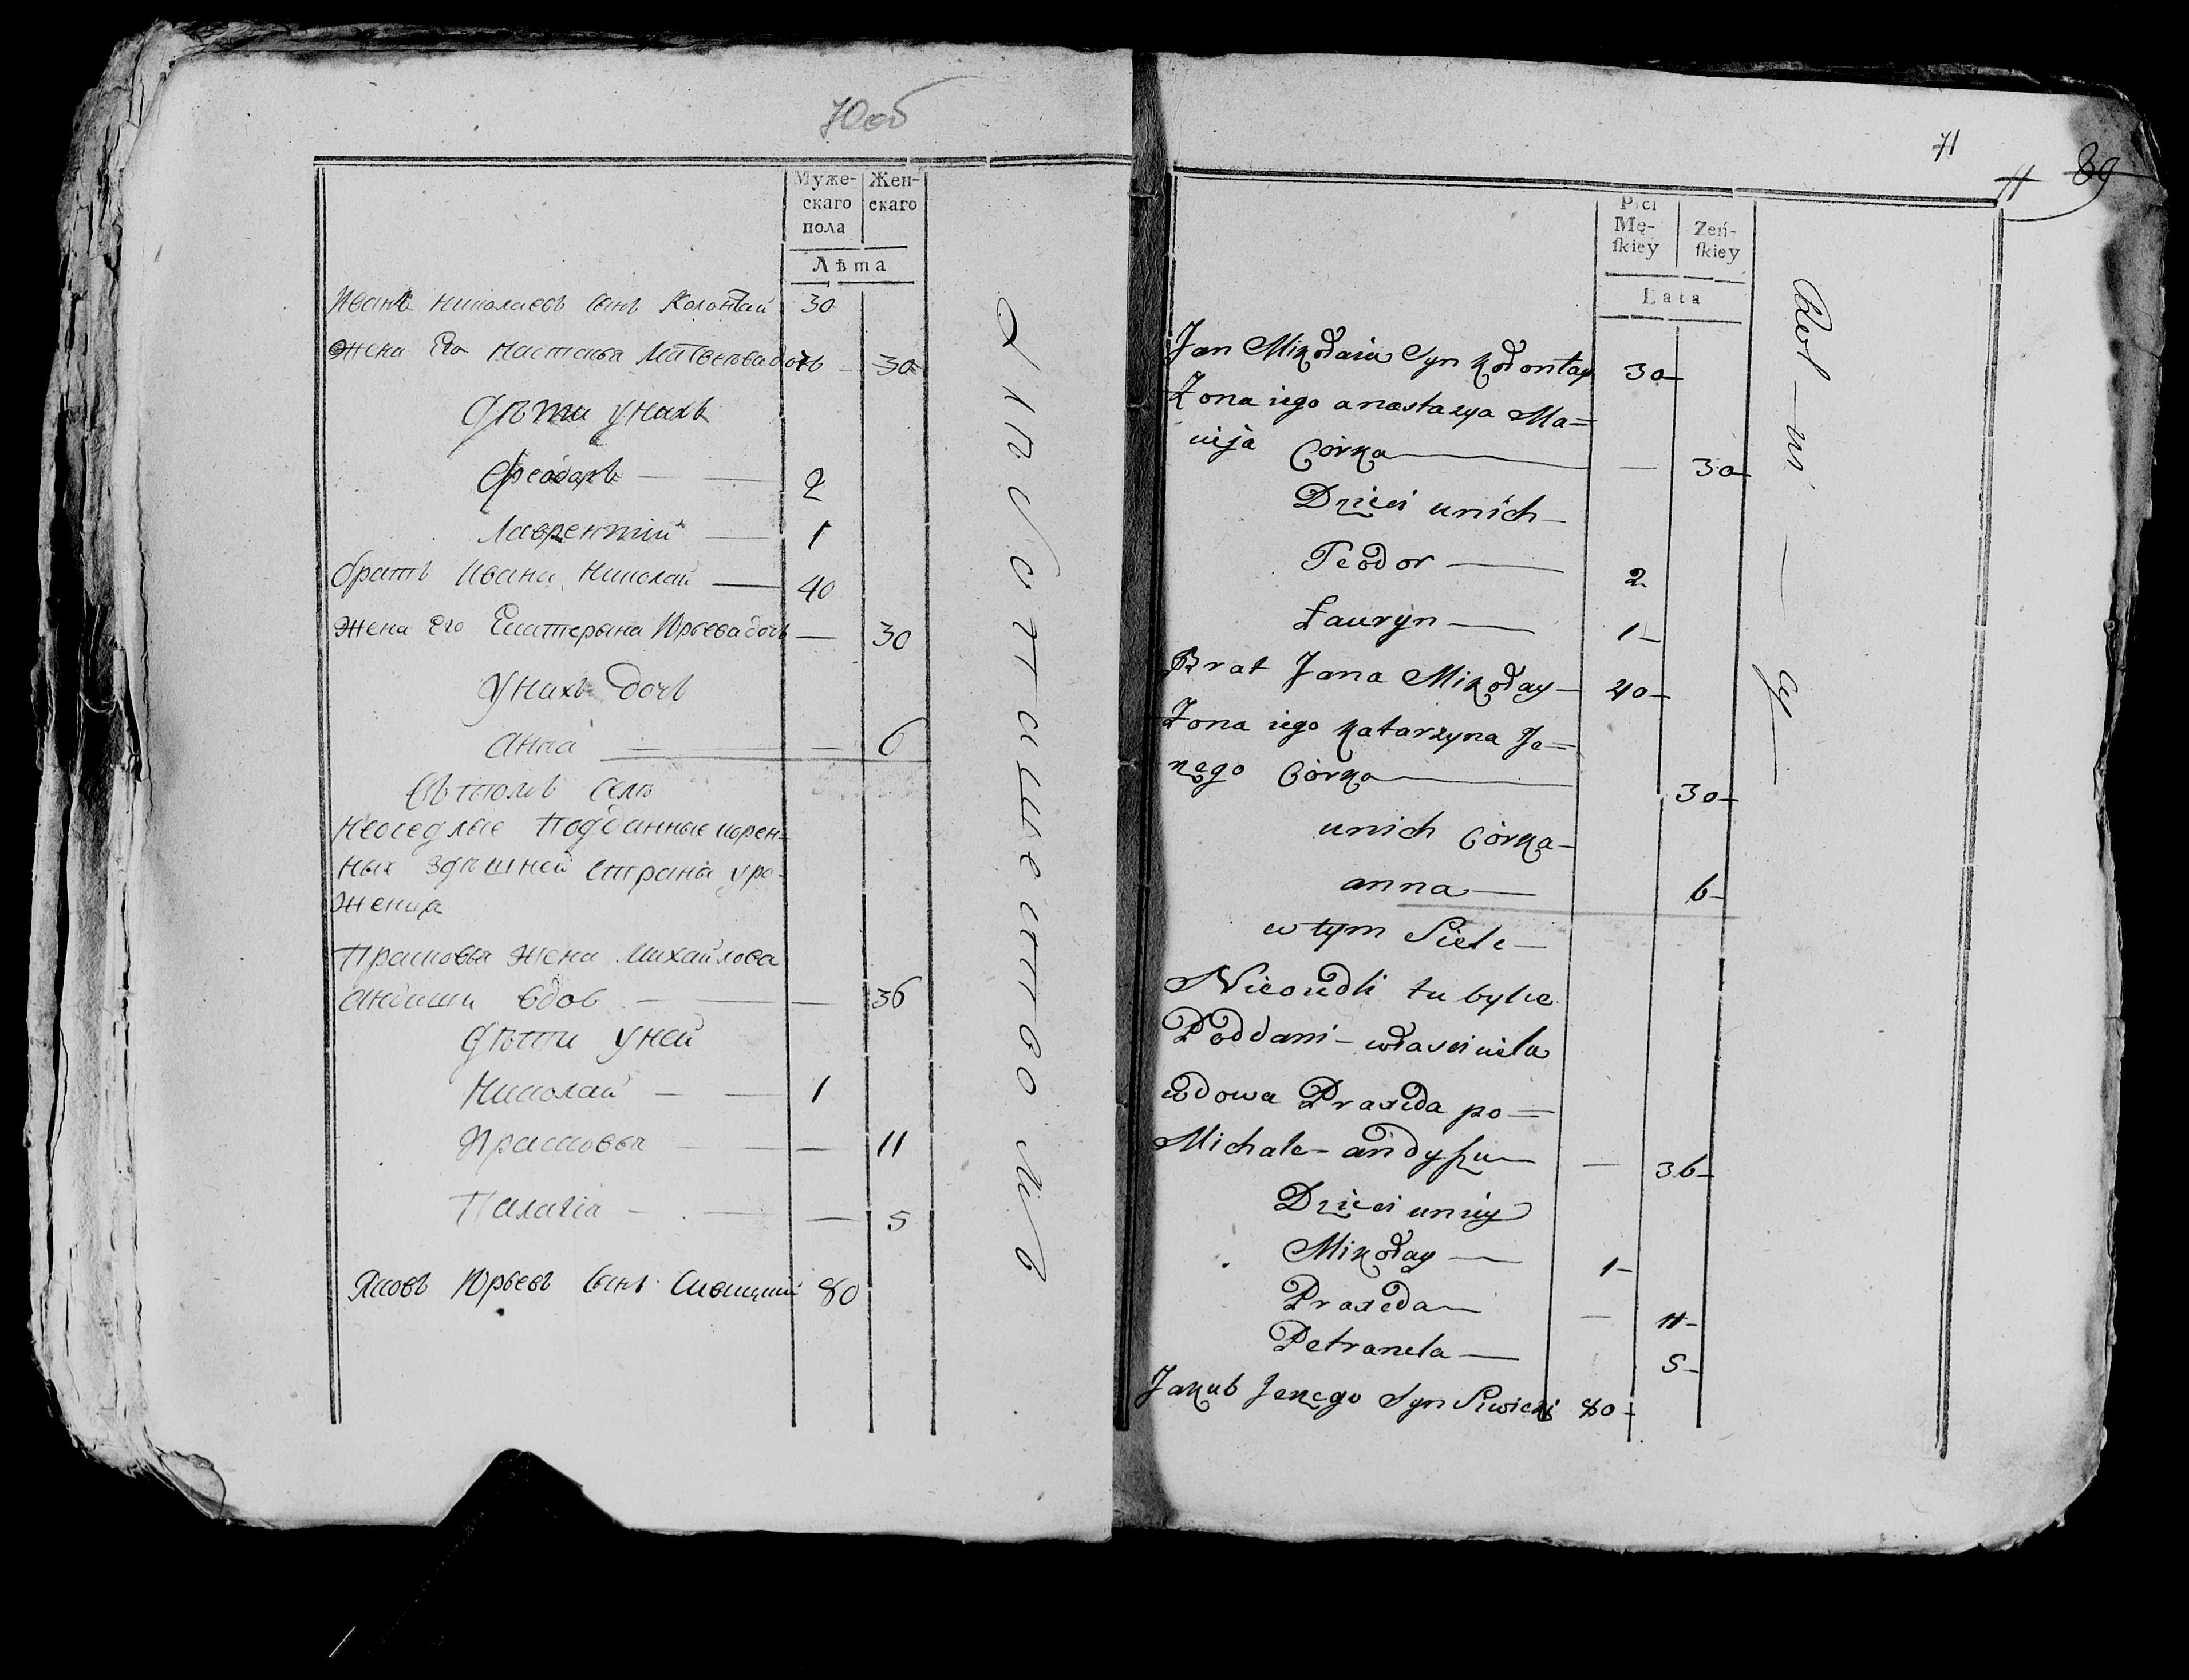 70об
Муже-
скаго
пола
Жен-
скаго
Лѣта
Иванъ Николаевъ сынъ Колонтай 30
Жена его Настасья Матвеевадочь 30
Дѣти унихъ
Феодоръ — — 2
Лаврентій — 1
братъ Ивана Николай — 40
Жена его Екатерына Юрьевадочь — 30
Унихъ дочь
Анна — — 6
Въ томъ селѣ
Неоседлые Подданные корен-
ные здѣшней страны уро-
женца
Прасковья жена Михайлова
вдов — — — 36
Дѣти уней
Николай — — 1
Прасковья — — — 11
Палагіа — — — 5
Яковъ Юрьевъ сынъ Сивицкий 80
71
11 89
Płci
Mę-
ſkiey
Zeń-
ſkiey
Lata
Jan Mikołaia Syn Kołontay 30
Zona iego anastazya Ma=
cieja Córka — — 30
Dzieci unich
Teodor — 2
Łauryn — 1
Brat Jana Mikołay 40
Zona iego Katarzyna Je=
rzego Córka — 30
unich Córka
anna — 6
w tym Siele
Nieosiedli tu bylce
Poddani
wdowa Praxeda po
Michale andyſzu — — 36
Dzieci uniey
Mikołay — 1
Praxeda — — 11
Petranela — 5
Jakub Jerzego Syn Siwicki 80